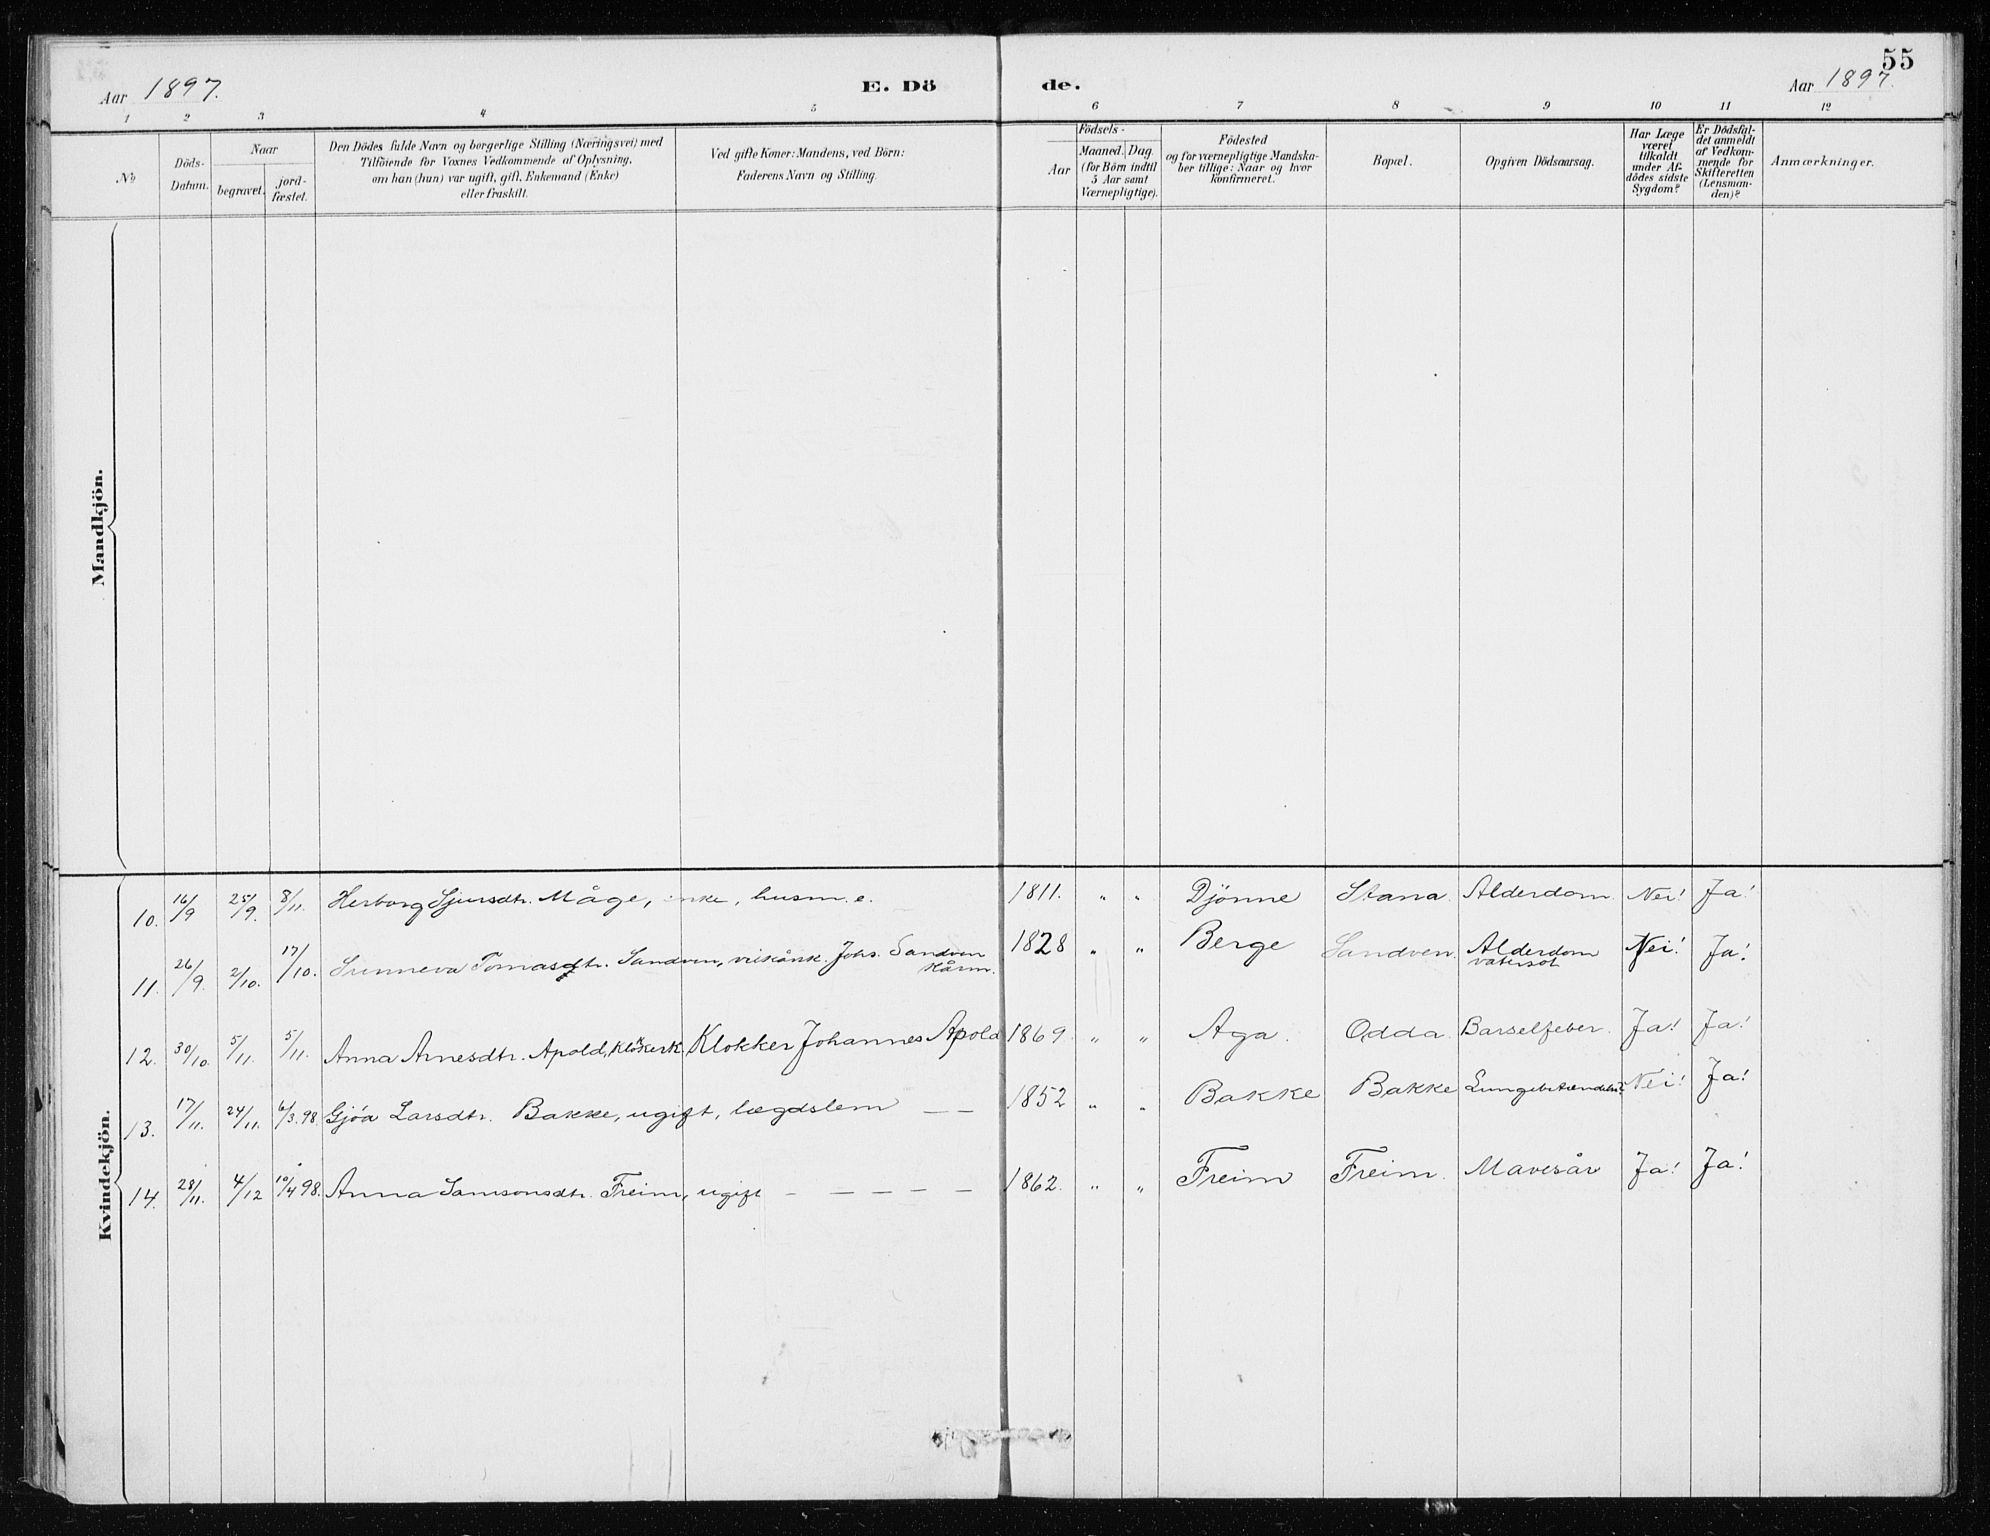 55
Aar 1897. E. Dö de. Aar 1897.
1 2 3 4 5 6 7 8 9 10 11 12
No
Döds-
Datum.
Naar
begravet.
jord-
fæstet.
Den Dödes fulde Navn og borgerlige Stilling (Næringsvei) med
Tilföiende for Voxnes Vedkommende af Oplysning,
om han (hun) var ugift, gift, Enkemand (Enke)
eller fraskilt.
Ved gifte Koner: Mandens, ved Börn:
Faderens Navn og Stilling.
Födsels-
Aar
Maaned. Dag
(for Börn indtil
5 Aar samt
Værnepligtige).
Födested
og for værnepligtige Mandska-
ber tillige: Naar og hvor
konfirmeret.
Bopæl.
Opgiven Dödsaarsag.
Har Læge
været
tilkaldt
under Af-
dödes sidste
Sygdom?
Er Dödsfal-
det anmeldt
af Vedkom-
mende for
Skifteretten
(Lensman-
den)?
Anmærkninger.
Mandkjön.
Kvindekjön.
10. 16/9 25/9. 8/11. Herborg Sjursdtr. Måge, enke, husm. e. 1811. " " Djönne Stana. Alderdom. Nei! Ja!
11. 26/9. 2/10. 17/10. Sunneva Tomasdtr. Sandven, Johs. Sandven 1828 " " Berge Sandven. Alderdom Nei! Ja!
Kårm. vatersot
12. 30/10. 5/11. 5/11. Anna Arnesdtr. Apold, Klokker Johannes Apold 1869. " " Aga. Odda. Barselfeber. Ja! Ja!
13. 17/11. 24/11. 6/3.98. Gjöa Larsdtr. Bakke, ugift, lægdslem — — 1852 " " Bakke Bakke Nei! Ja!
14. 28/11. 4/12 10/4 98. Anna Samsonsdtr. Freim, ugift — — — — — 1862. " " Freim Freim. Mavesår Ja! Ja!